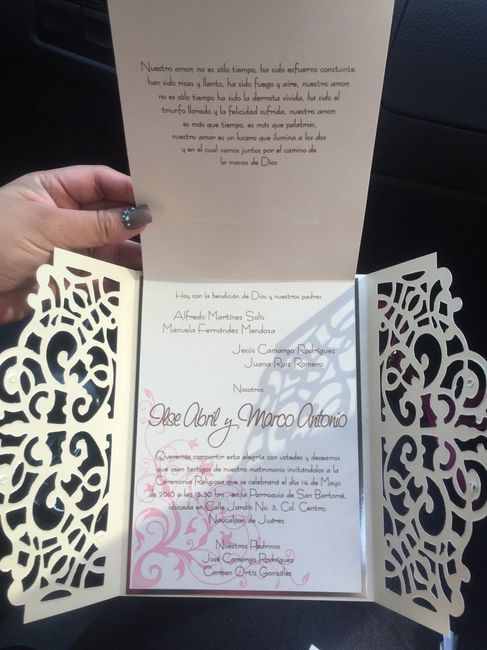 Nuestro amor, no es sólo tiempo, ha sido esfuerzo constante,
han sido risas y llanto, ha sido fuego y aire, nuestro amor,
no es sólo tiempo ha sido la derrota vivida, ha sido el
triunfo llorado y la felicidad sufrida, nuestro amor,
es más que tiempo, es más que palabras,
nuestro amor es un lucero que ilumina a los dos
y en el cual vamos juntos por el camino de
la manos de Dios
Hoy con la bendición de Dios y nuestros padres
Alfredo Martínez Solís
Manuela Fernández Mendoza
Jesús Camargo Rodríguez
Juana Ruiz Romero
Nosotros
Ilse Abril y Marco Antonio
Queremos compartir esta alegría con ustedes y deseamos
que sean testigos de nuestro matrimonio invitándolos a la
Ceremonia Religiosa que se celebrará el día 14 de Mayo
de 2016 a las 13:30 hrs., en la Parroquia de San Bartomé,
ubicada en Calle Jardín No. 3, Col. Centro,
Naucalpan de Juárez.
Nuestros Padrinos
José Camargo Rodríguez
Carmen Ortíz González